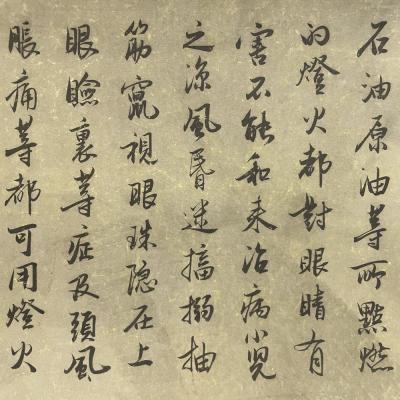 石油原油等所點燃
的燈火都對眼睛有
害不能和来治病小兒
之涼風昏迷搐搦抽
筋竄視眼珠隐在上
眼瞼裏等症及頭風
脹痛等都可用燈火